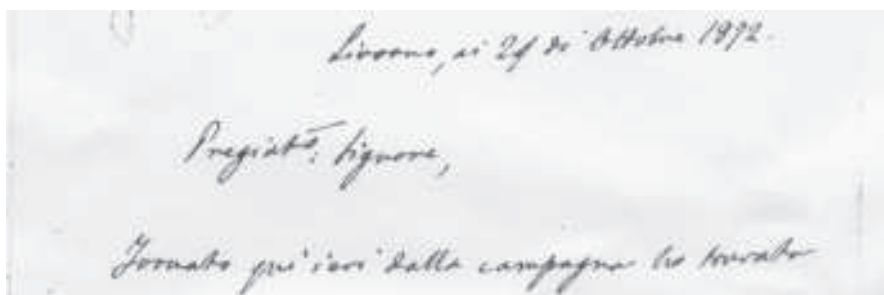 Livorno, ai 29 di Ottobre 1872.
Pregiat.º Signore,
Tornato qui ieri dalla campagna ho trovato